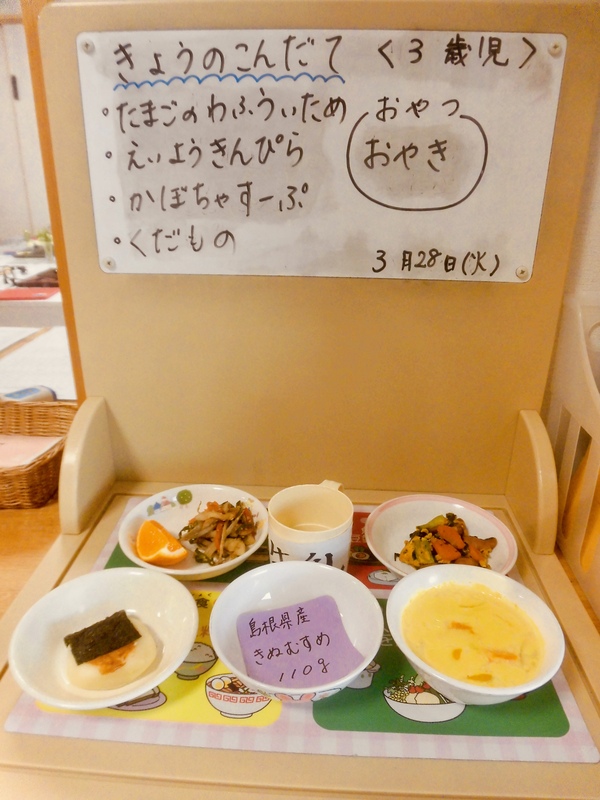 きょうのこんだて <3歳児>
・たまごのわふういため
・えいようきんぴら
・かぼちゃすーぷ
・くだもの
おやつ
おやき
3月28日(火)
島根県産
きぬむすめ
110g